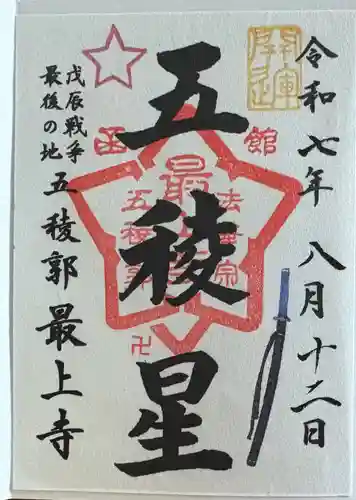 令和七年 八月十二日
開運
函館
五稜星
最上寺
法華宗
五稜郭
卍
戊辰戦争
最後の地
五稜郭 最上寺